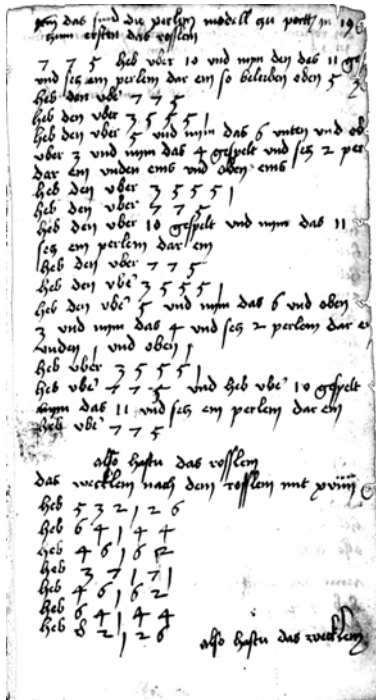 das sind die perlein modell zu
zum ersten das rosslein
7 7 5 heb vber 10 vnd nym den das 11
vnd secz ein perlein dar ein so beleiben oben 5
heb den vber 7 7 5
heb den vber 3 5 5 5 1
heb den vber 5 vnd nym das 6 vnten vnd
vber 3 vnd nym das 4 gespelt vnd secz 2 per
dar ein vnden eins vnd oben eins
heb den vber 3 5 5 5 1
heb den vber 7 7 5
heb den vber 10 gespelt vnd nym das 11
secz ein perlein dar ein
heb den vber 7 7 5
heb den vber 3 5 5 5 1
heb den vber 5 vnd nym das 6 vnd oben
3 vnd nym das 4 vnd secz 2 perlein dar
vnden 1 vnd oben 1
heb vber 3 5 5 5 1
heb vber 7 7 5 vnd heb vber 10 gespelt
nym das 11 vnd secz ein perlein dar ein
heb vber 7 7 5
also hastu das rosslein
das wecklein nach dem rosslein mit xviiii
heb 5 3 2 1 2 6
heb 6 4 1 4 4
heb 4 6 1 6 2
heb 3 7 1 7 1
heb 4 6 1 6 2
heb 6 4 1 4 4
heb 8 2 1 2 6 also hastu das wecklein